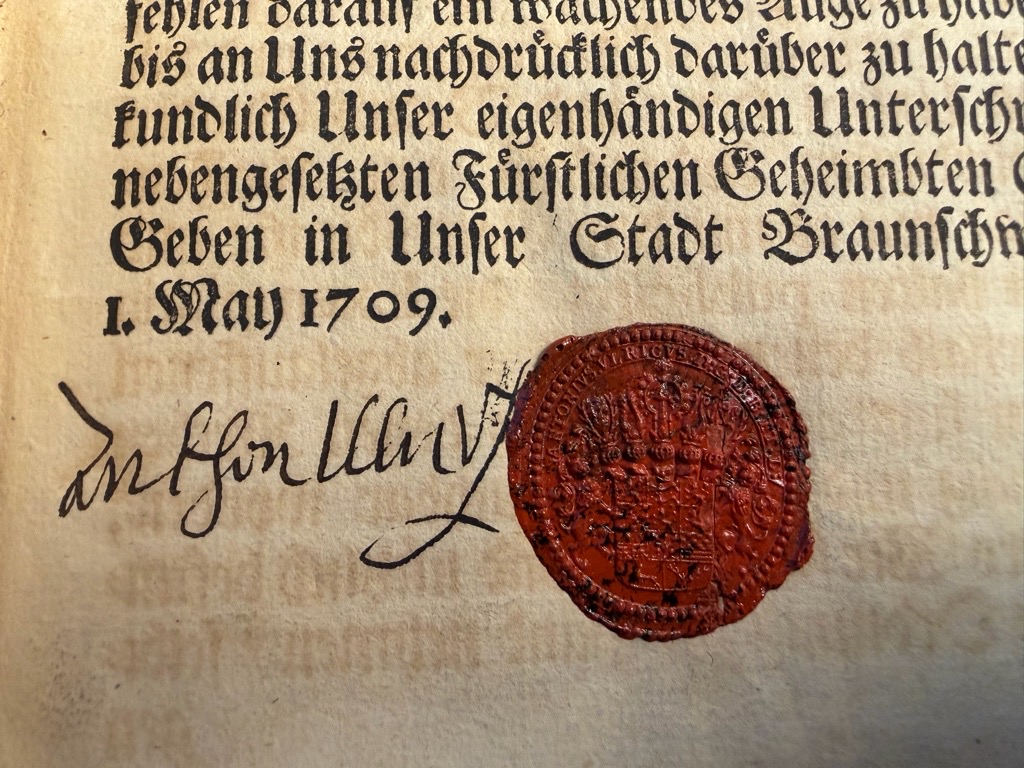 fehlen darauf ein wachendes Auge zu habe
bis an Uns nachdrücklich darüber zu halte
kundlich Unser eigenhändigen Unterschr
nebengesetzten Fürstlichen Geheimbten
Geben in Unser Stadt Braunschw
1. May 1709.
Anthon Ulrich
ANTONIUS ULRICVS